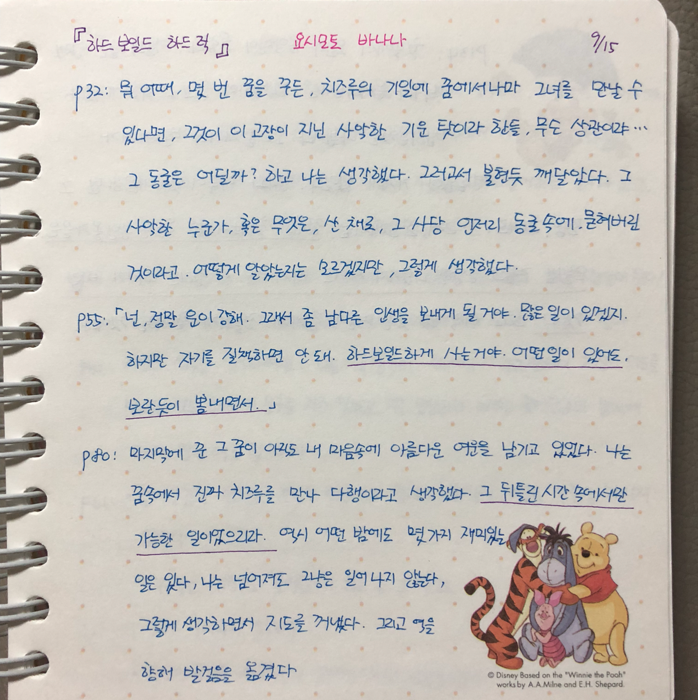 『하드보일드 하드 럭』 요시모토 바나나 9/15
p32: 뭐 어때, 몇 번 꿈을 꾸든, 치즈루의 기일에 꿈에서나마 그녀를 만날 수
있다면, 그것이 이 고장이 지닌 사악한 기운 탓이라 한들, 무슨 상관이랴…
그 동굴은 어딜까? 하고 나는 생각했다. 그러고서 불현듯 깨달았다. 그
사악한 누군가, 혹은 무엇은, 산 채로, 그 사당 언저리 동굴 속에 묻혀버린
것이라고. 어떻게 알았는지는 모르겠지만, 그렇게 생각했다.
p55: 「넌, 정말 운이 강해. 그래서 좀 남다른 인생을 보내게 될 거야. 많은 일이 있겠지.
하지만 자기를 질책하면 안 돼. 하드보일드하게 사는거야. 어떤 일이 있어도,
보란듯이 뽐내면서.」
p80: 마지막에 꾼 그 꿈이 아직도 내 마음속에 아름다운 여운을 남기고 있었다. 나는
꿈속에서 진짜 치즈루를 만나 다행이라고 생각했다. 그 뒤틀린 시간 속에서만
가능한 일이었으리라. 역시 어떤 밤에도 몇 가지 재미있는
일은 있다, 나는 넘어져도 그냥은 일어나지 않는다,
그렇게 생각하면서 지도를 꺼냈다. 그리고 역을
향해 발걸음을 옮겼다
© Disney Based on the "Winnie the Pooh"
works by A.A.Milne and E.H. Shepard.